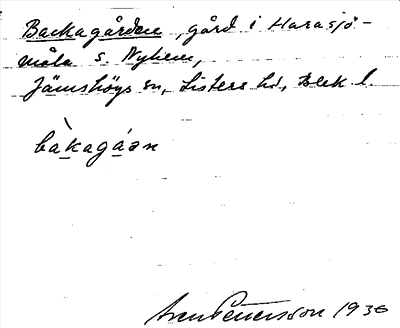 Backagården, gård i Harasjö-
måla s. Nyhem,
Jämshögs sn, Listers hd, Blek. l.
bàkagáən
Sven Pettersson 1936